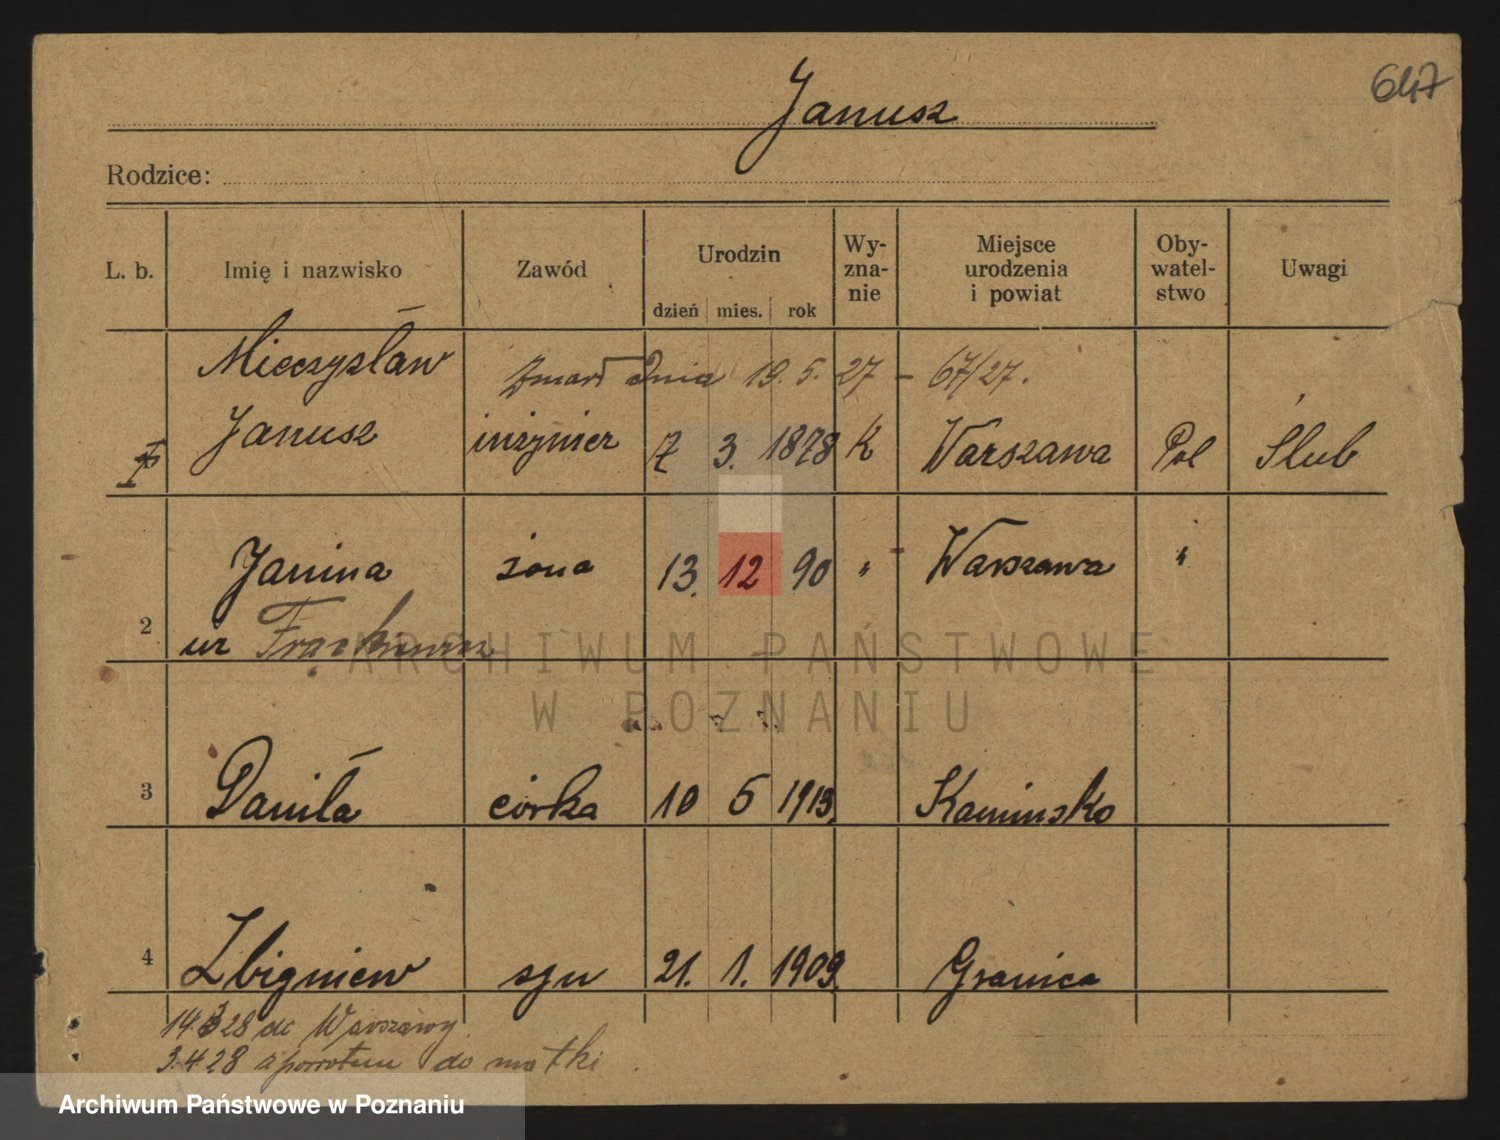 647
Janusz
Rodzice:
L. b. Imię i nazwisko Zawód Urodzin dzień mies. rok Wy-zna-nie Miejsce urodzenia i powiat Oby-watel-stwo Uwagi
Mieczysław Zmarł dnia 19. 5. 27 – 67/27.
I Janusz inżynier 7 3. 1878 k Warszawa Pol Ślub
Janina żona 13. 12 90 " Warszawa "
2 ur
3 Daniła córka 10 5 1913. Kaminsko
4 Zbigniew syn 21. 1. 1909. Granica
14.3 28 do Warszawy
3.4.28 z powrotem do matki
ARCHIWUM PAŃSTWOWE
W POZNANIU
Archiwum Państwowe w Poznaniu